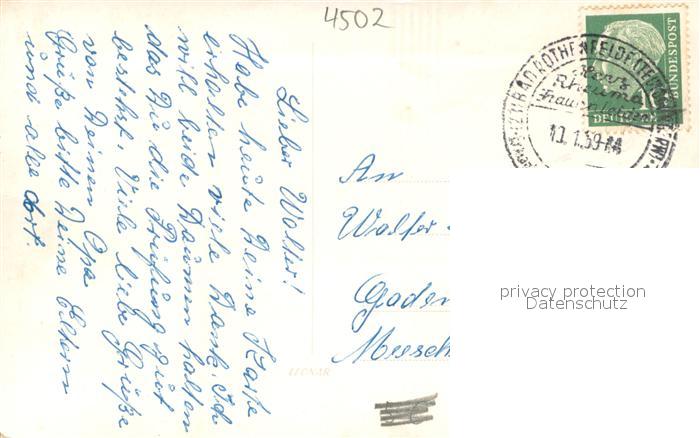 4502
Lieber Walter!
Habe heute Deine Karte
erhalten viele Dank. Ich
will beide Daumen halten
das Du die Prüfung gut
bestehst. Viele liebe Grüße
von Deinen Opa
Grüße bitte Deine Eltern
und alle dort.
BAD ROTHENFELDE (TEUTOBG.
Herz
Rheuma
Frauenleiden
10.1.59
DEUTSCHE
BUNDESPOST
10
An
Walter
Gaden
Meesch
privacy protection
Datenschutz
LEONAR